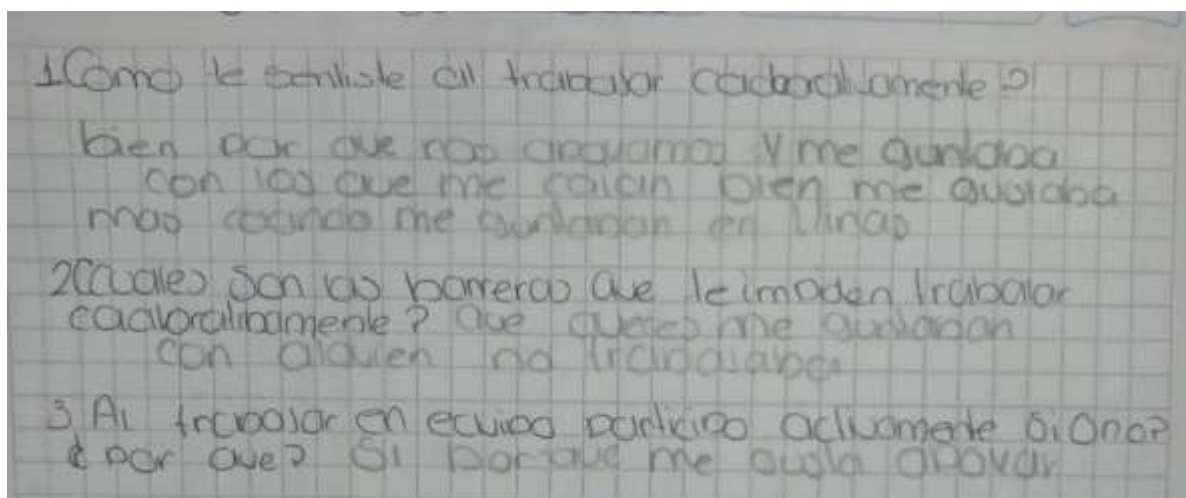 1 Como te sentiste al trabajar caoboratiamente?
bien por que nos apoyamos y me guntaba
con los que me caian bien me gustaba
mas cuando me guntaban en Binas
2 Cuales son las barreras que te impiden trabajar
caalboratibamente? Que aveces me guntaban
con alguien no trabajaba
3 Al trabajar en equipo participo activamente si o no?
¿ por que? Si porque me gusta apoyar